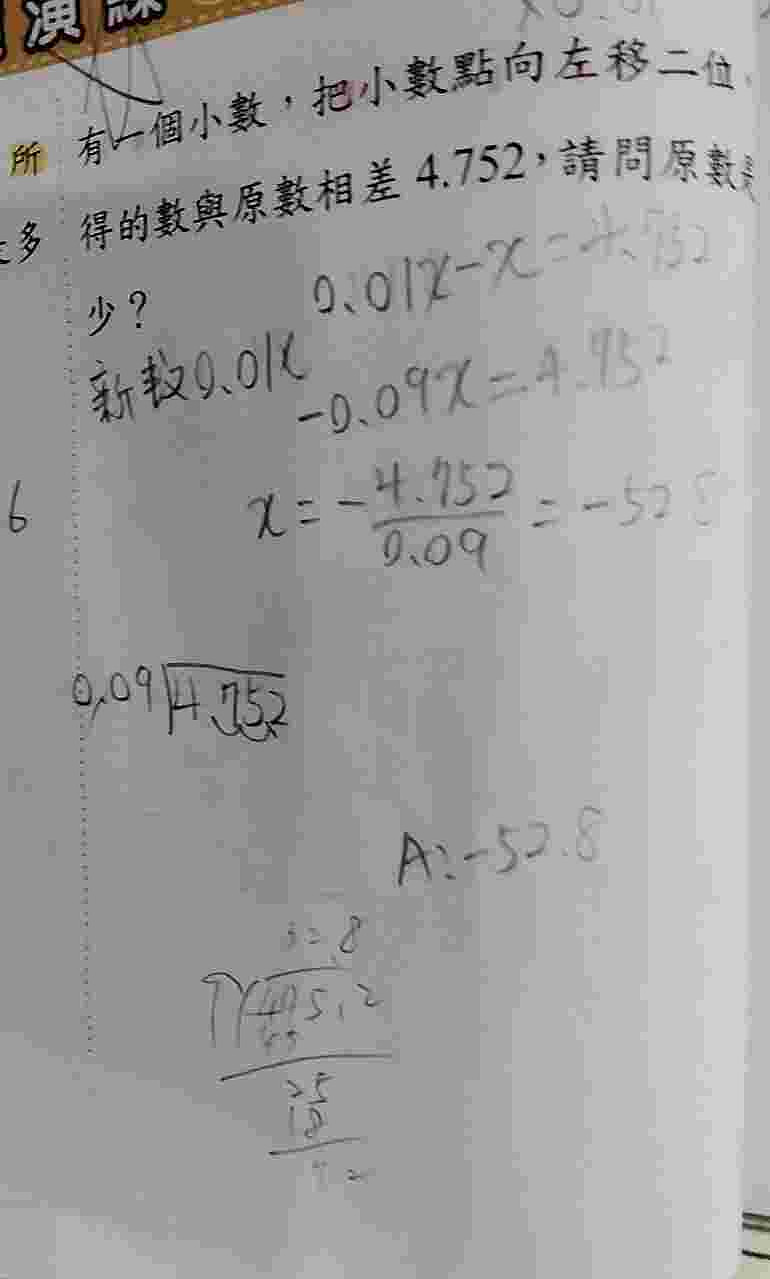 演練
有一個小數，把小數點向左移二位，
所
得的數與原數相差 4.752，請問原數是
多
少？
0.01x-x=4.752
新數0.01x
-0.09x=4.752
6
x=-4.752/0.09=-52.8
0.09 4.752
A:-52.8
52.8
475.2
45
25
18
72